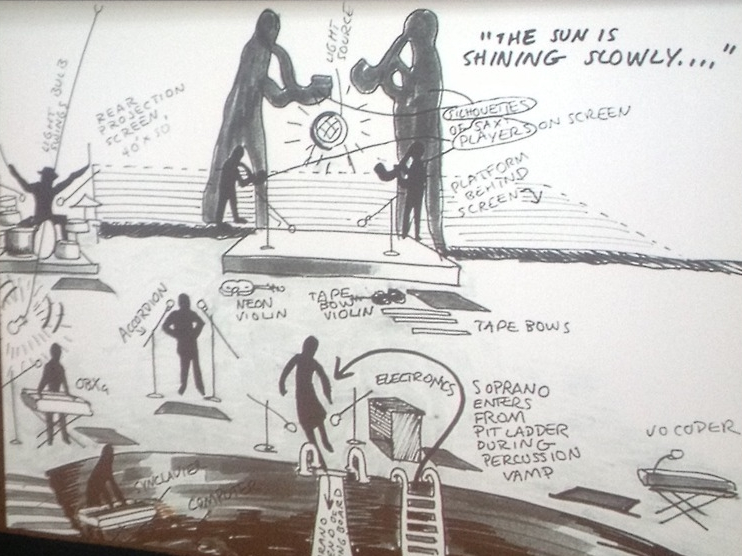 "THE SUN IS
SHINING SLOWLY...."
LIGHT
SOURCE
LIGHT
SWINGS BULB
REAR
PROJECTION
SCREEN,
SILHOUETTES
OF SAX
PLAYERS ON SCREEN
PLATFORM
BEHIND
SCREEN
ACCORDION
NEON
VIOLIN
TAPE
BOW
VIOLIN
TAPE BOWS
OBXa
ELECTRONICS
SOPRANO
ENTERS
FROM
PIT LADDER
DURING
PERCUSSION
VAMP
VOCODER
SYNCLAVIER
COMPUTER